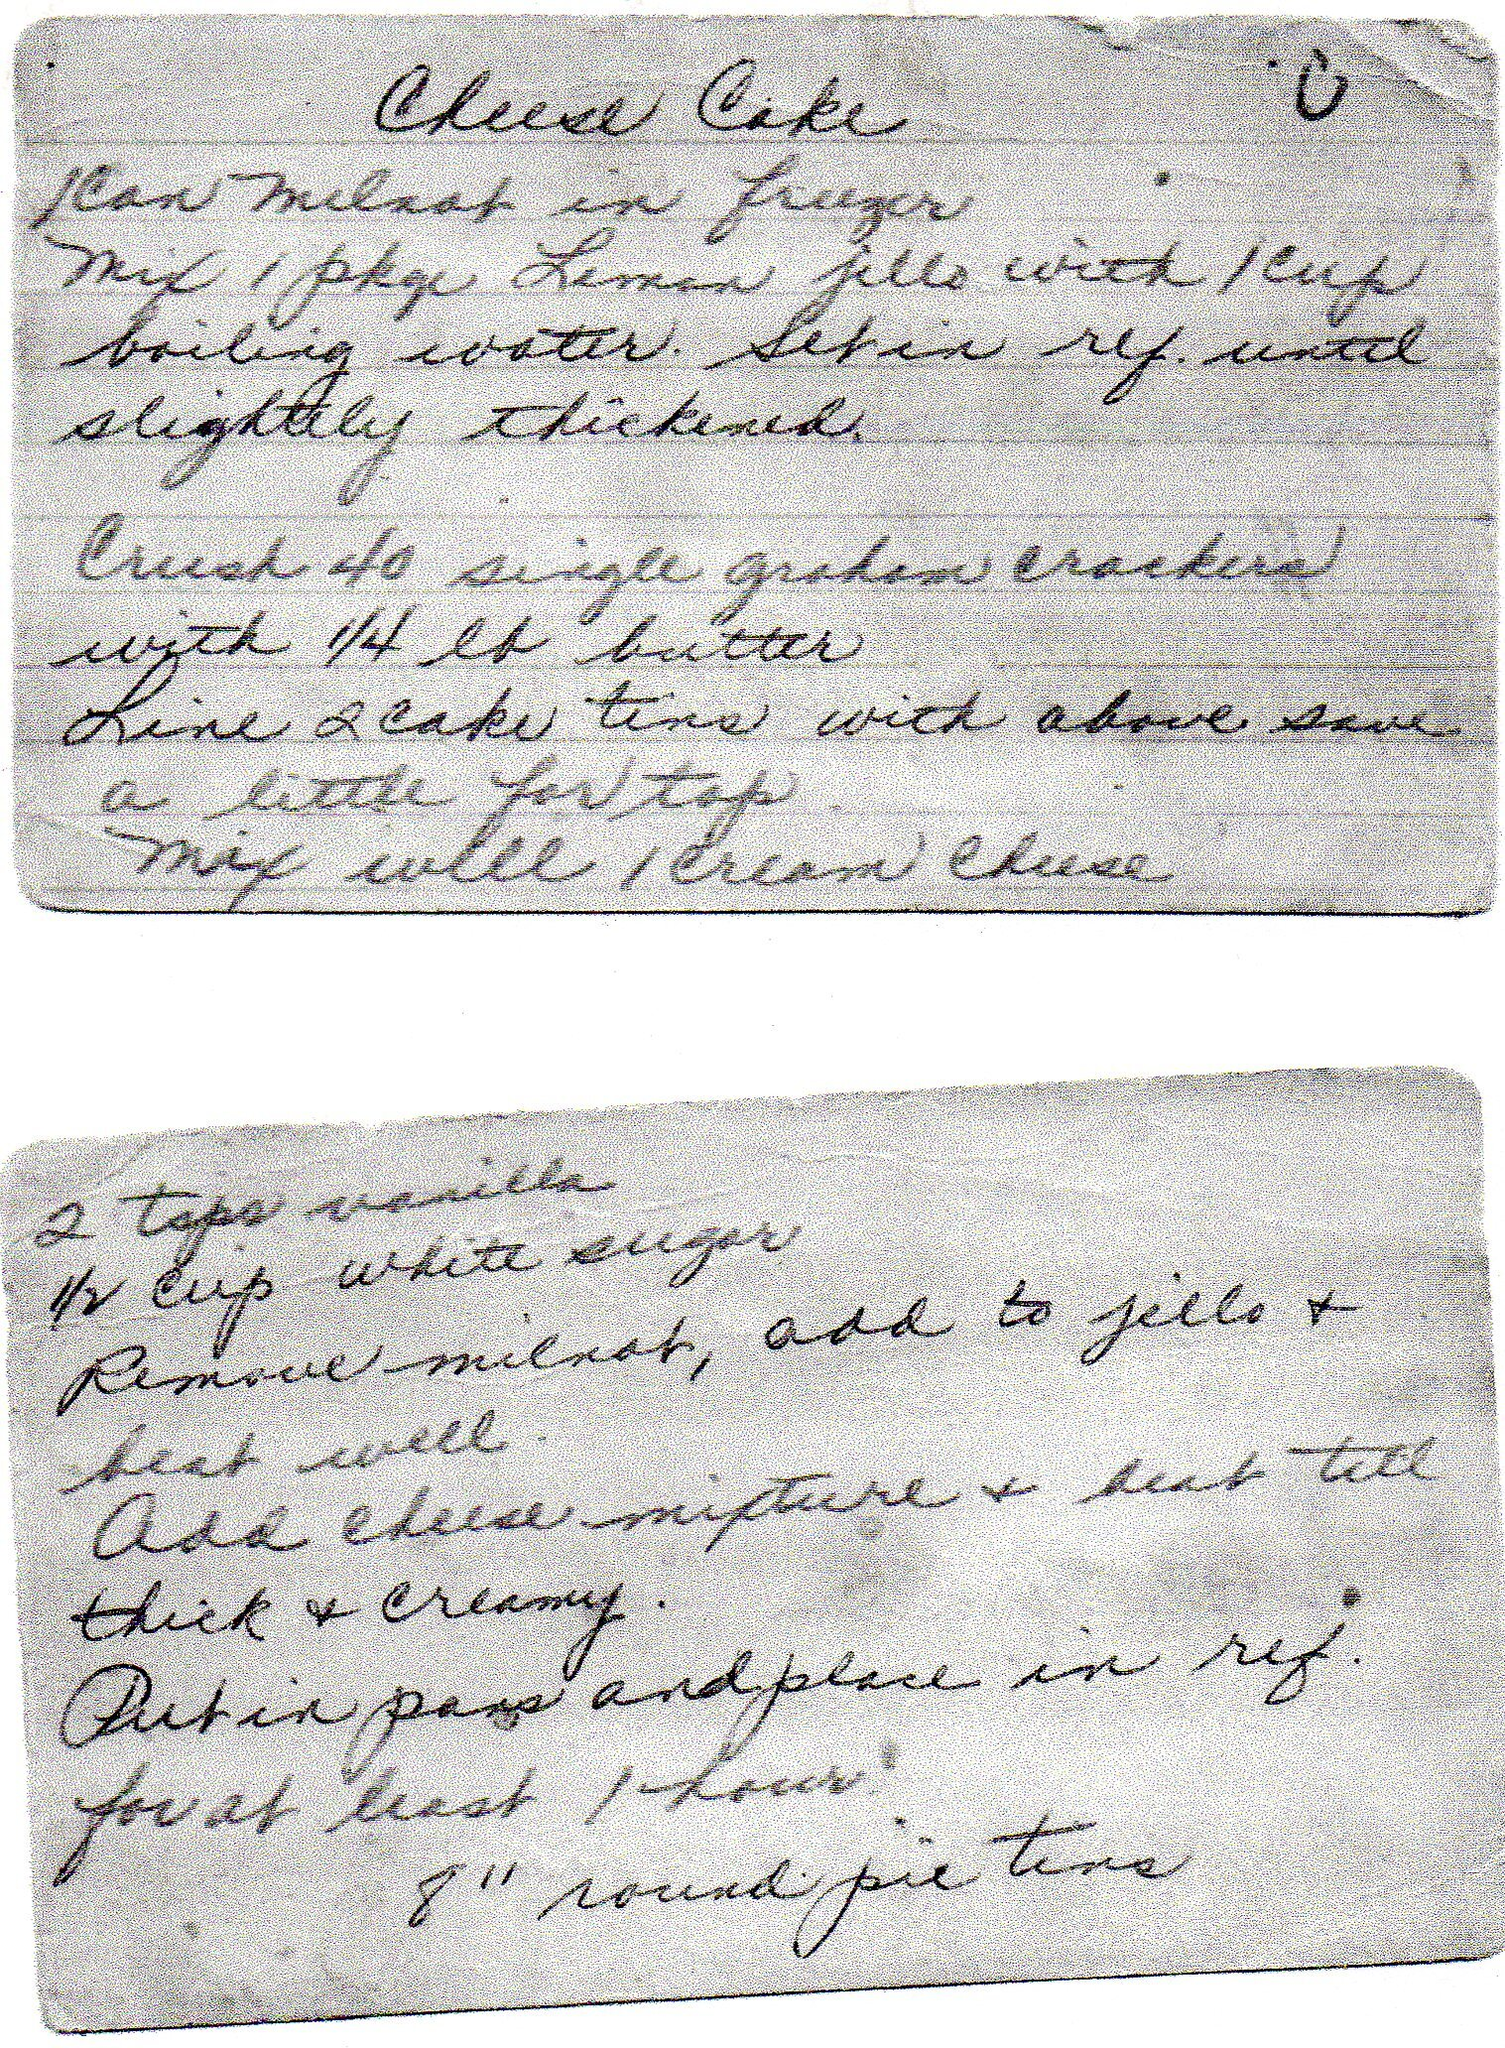 Cheese Cake
1 Can Melnot in freezer
Mix 1 pkge Lemon jello with 1 Cup
boiling water. Set in ref. until
slightly thickened.
Crush 40 single graham crackers
with 1/4 lb butter
Line 2 cake tins with above save
a little for top
Mix well 1 cream cheese
2 tsps vanilla
1/2 cup white sugar
Remove milnot, add to jello +
beat well.
Add cheese mixture + beat till
thick + creamy.
Put in pans and place in ref.
for at least 1 hour
8" round pie tins